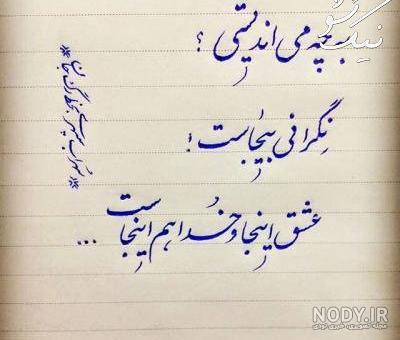 به چه می اندیشی ؟
نگرانی بیجاست !
عشق اینجا و خدا هم اینجاست ...
سهراب سپهری بخط
NODY.IR